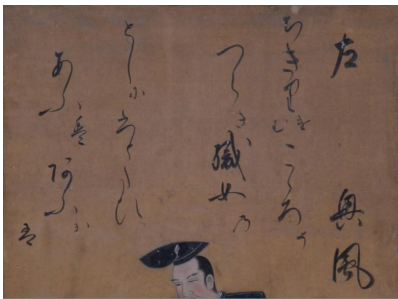 左 興風
ちきりけむこゝろそ
つらき織女乃
としにひとたひ
あふは阿ふかは